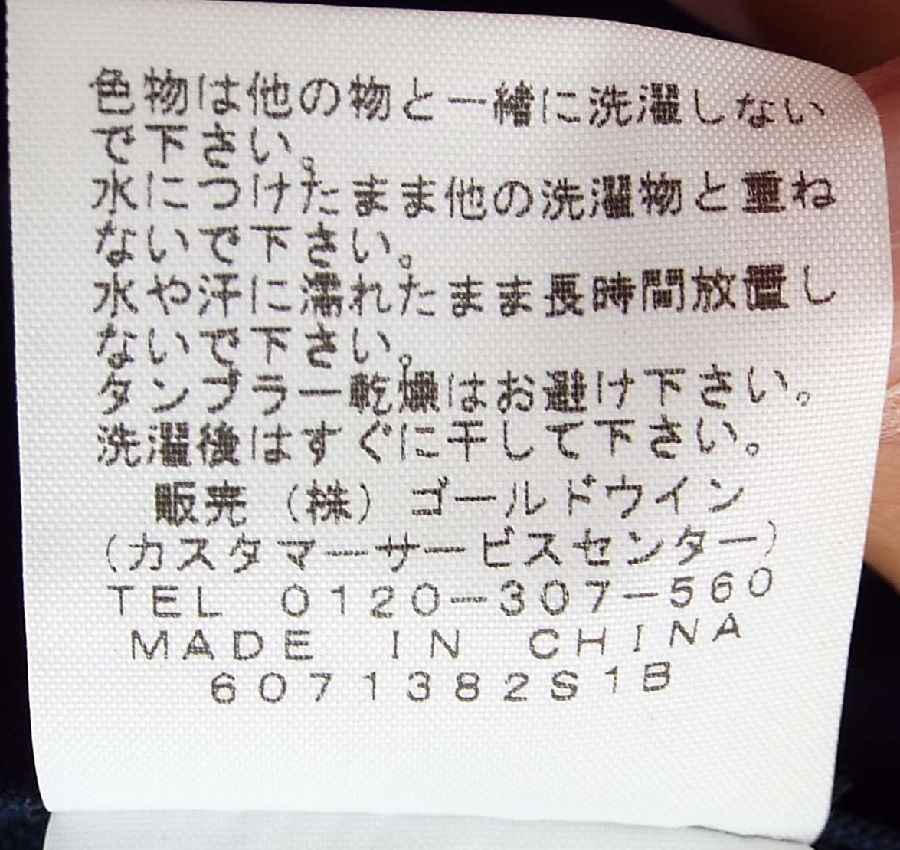 色物は他の物と一緒に洗濯しない
で下さい。
水につけたまま他の洗濯物と重ね
ないで下さい。
水や汗に濡れたまま長時間放置し
ないで下さい。
タンブラー乾燥はお避け下さい。
洗濯後はすぐに干して下さい。
販売（株）ゴールドウイン
（カスタマーサービスセンター）
TEL 0120-307-560
MADE IN CHINA
6071382S1B